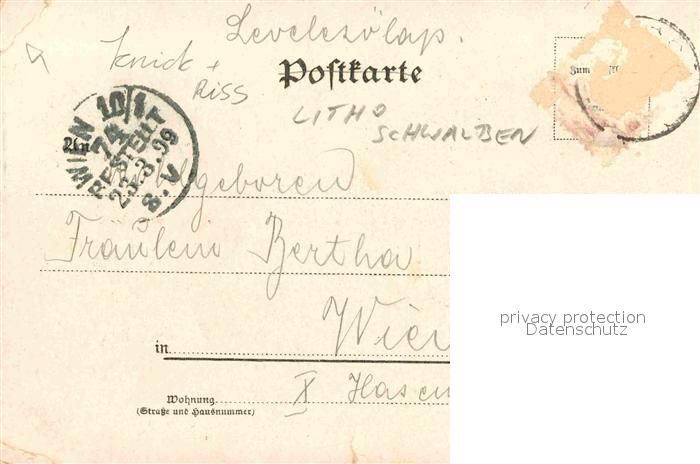 Levelezőlap.
Knick +
Riss
Postkarte
LITHO
SCHWALBEN
Zum
An
WIEN 10/1
74
BESTELLT
23.3.99
8.V
geboren
Fräulein Bertha
Wien
in
X Hasen
Wohnung
(Straße und Hausnummer)
privacy protection
Datenschutz